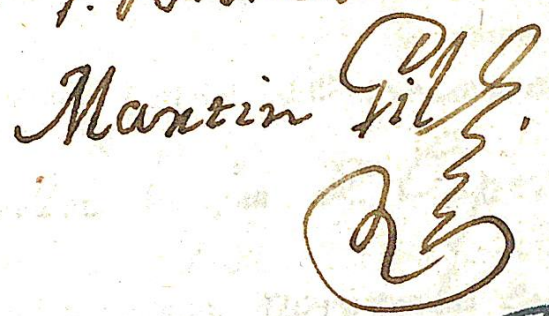 Martin Gil.